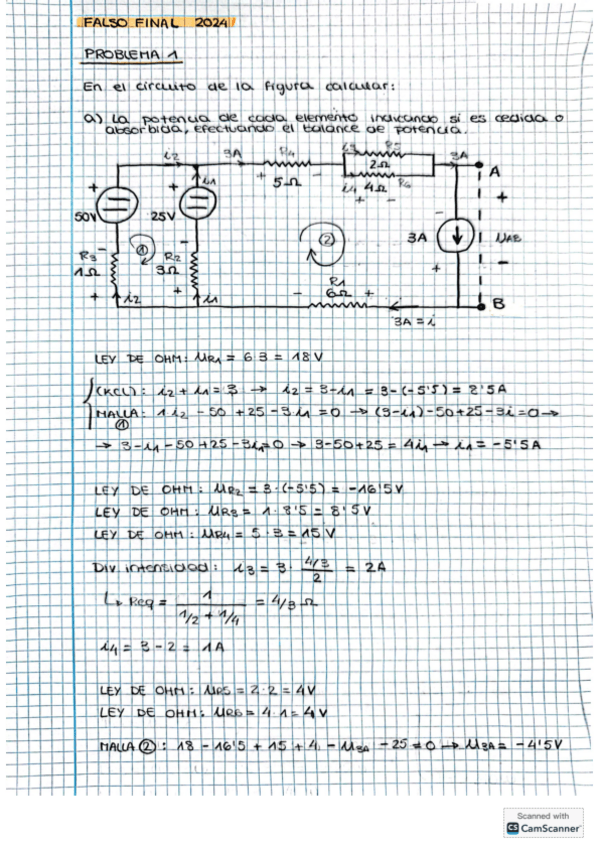 FALSO FINAL 2024
PROBLEMA 1
En el circuito de la figura calcular:
a) La potencia de cada elemento indicando si es cedida o
absorbida, efectuando el balance de potencia.
i2 3A R4 i3 R5 3A
2Ω A
+ i1 + 5Ω - i4 4Ω R6 +
50V 25V + -
① ② 3A UAB
R3 1Ω R2 3Ω R1 6Ω -
+ i2 + i1 - + B
3A = i
LEY DE OHM: UR1 = 6·3 = 18V
(KCL): i2 + i1 = 3 → i2 = 3-i1 = 3-(-5'5) = 8'5A
MALLA ①: 1i2 - 50 + 25 - 3i1 = 0 → (3-i1) - 50 + 25 - 3i = 0 →
→ 3 - i1 - 50 + 25 - 3i1 = 0 → 3 - 50 + 25 = 4i1 → i1 = -5'5A
LEY DE OHM: UR2 = 3·(-5'5) = -16'5V
LEY DE OHM: UR3 = 1·8'5 = 8'5V
LEY DE OHM: UR4 = 5·3 = 15V
Div intensidad: i3 = 3· 4/3 / 2 = 2A
↳ Req = 1 / 1/2 + 1/4 = 4/3 Ω
i4 = 3 - 2 = 1A
LEY DE OHM: UR5 = 2·2 = 4V
LEY DE OHM: UR6 = 4·1 = 4V
MALLA ②: 18 - 16'5 + 15 + 4 - UBA - 25 = 0 → UBA = -4'5V
Scanned with
CS CamScanner